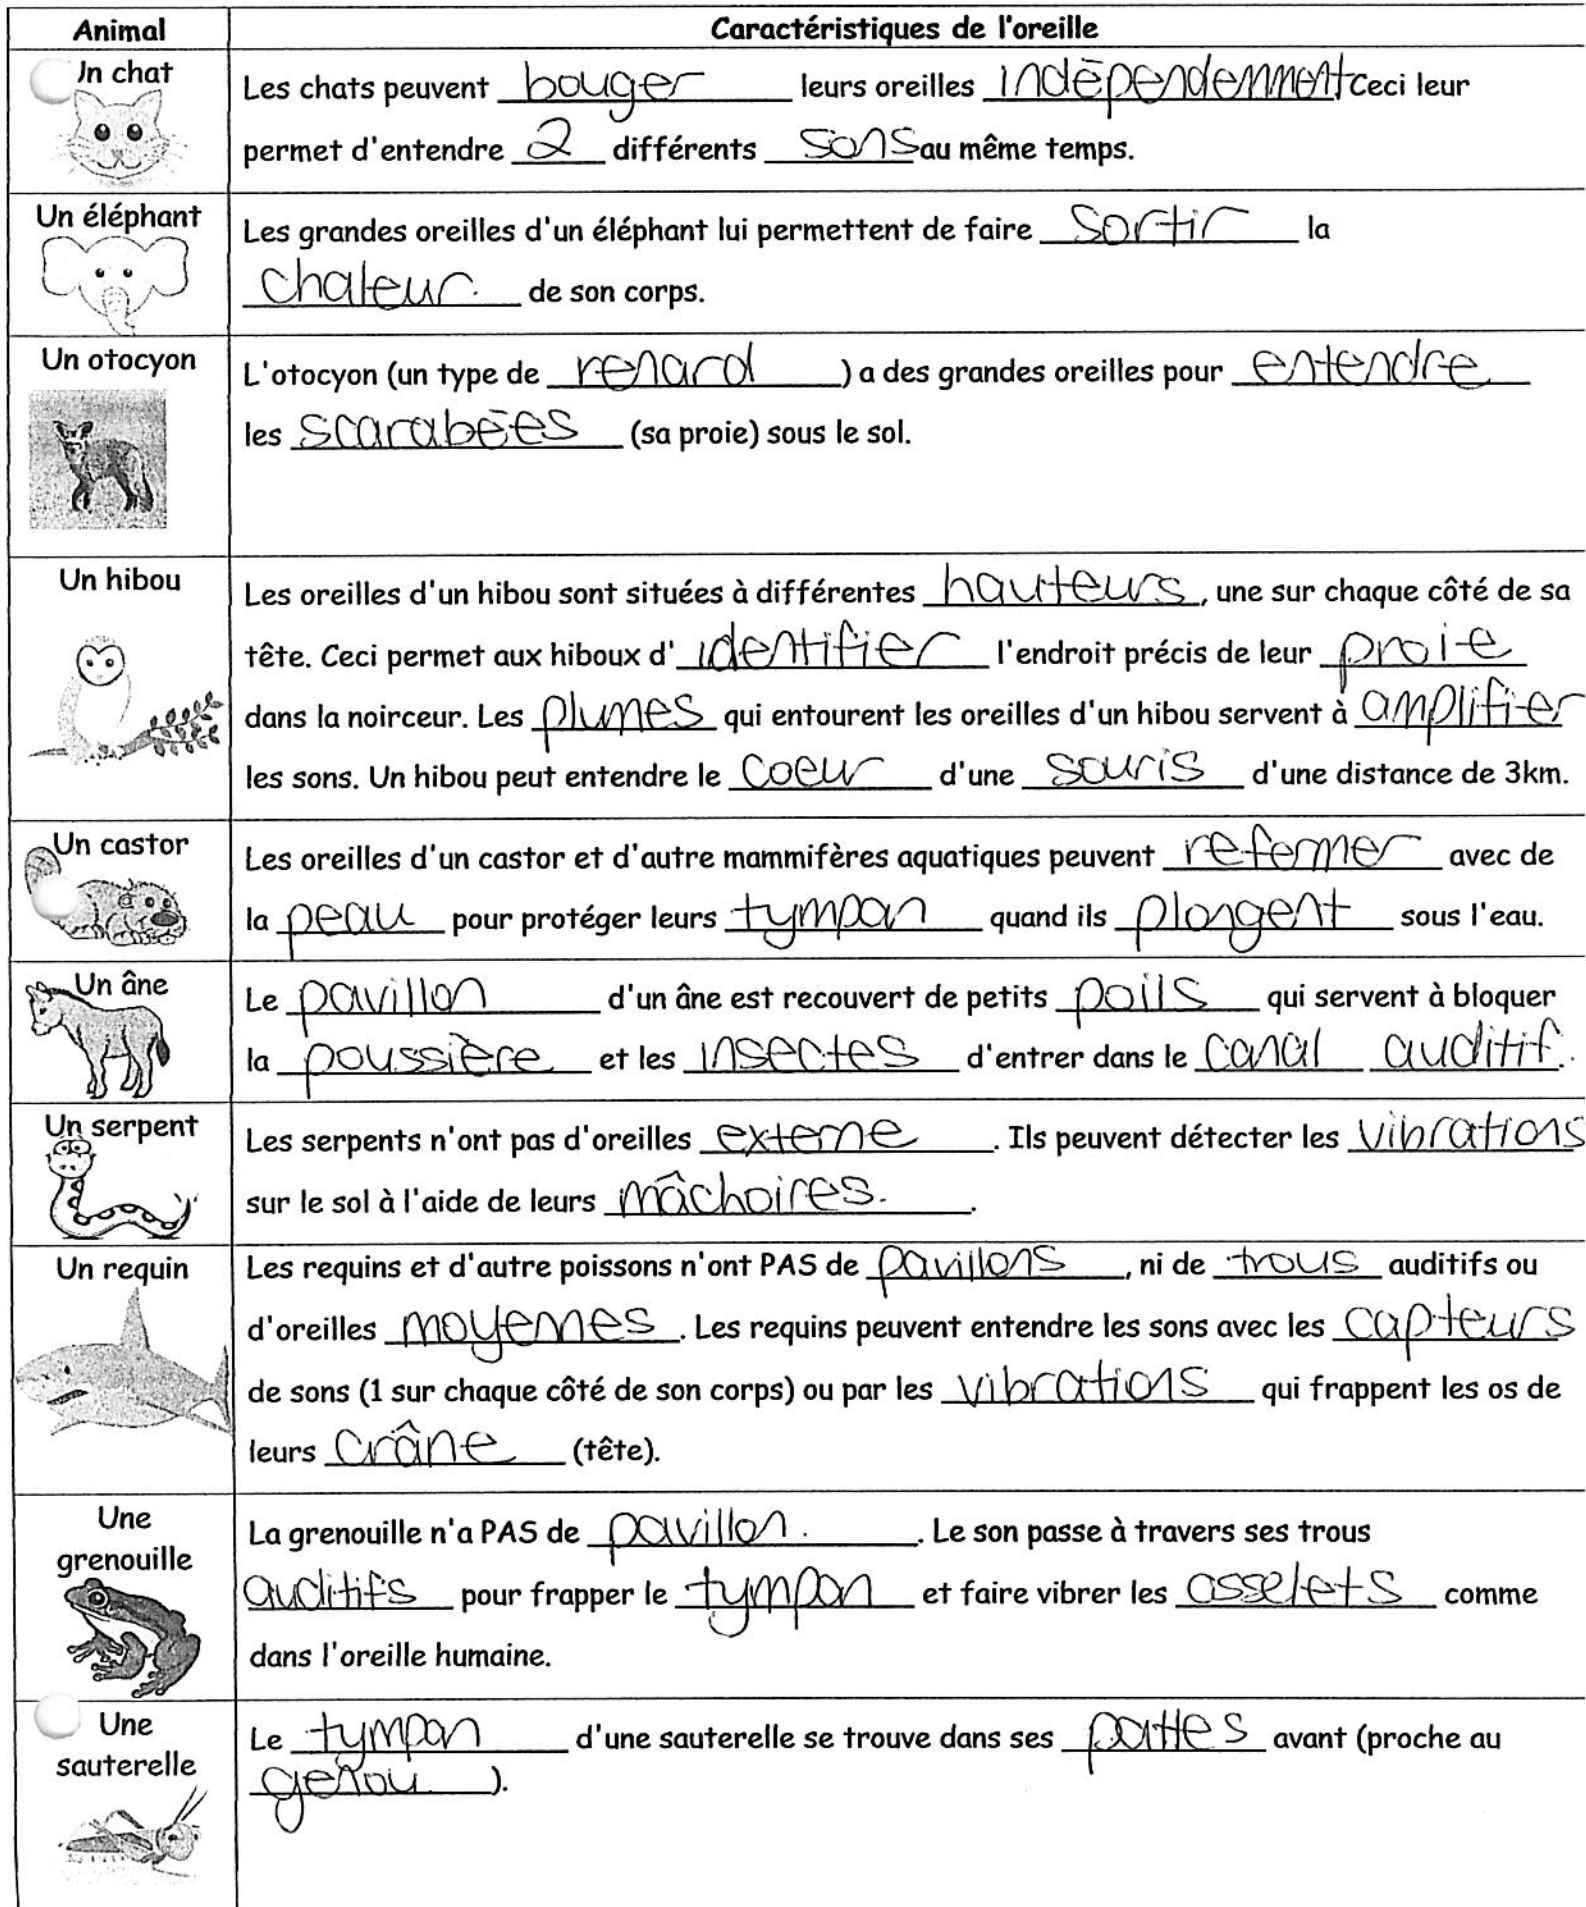 Animal Caractéristiques de l'oreille
Un chat
Les chats peuvent bouger leurs oreilles indépendemment Ceci leur
permet d'entendre 2 différents sons au même temps.
Un éléphant
Les grandes oreilles d'un éléphant lui permettent de faire sortir la
chaleur. de son corps.
Un otocyon
L'otocyon (un type de renard) a des grandes oreilles pour entendre
les scarabées (sa proie) sous le sol.
Un hibou
Les oreilles d'un hibou sont situées à différentes hauteurs, une sur chaque côté de sa
tête. Ceci permet aux hiboux d'identifier l'endroit précis de leur proie
dans la noirceur. Les plumes qui entourent les oreilles d'un hibou servent à amplifier
les sons. Un hibou peut entendre le coeur d'une souris d'une distance de 3km.
Un castor
Les oreilles d'un castor et d'autre mammifères aquatiques peuvent refermer avec de
la peau pour protéger leurs tympan quand ils plongent sous l'eau.
Un âne
Le pavillon d'un âne est recouvert de petits poils qui servent à bloquer
la poussière et les insectes d'entrer dans le canal auditif.
Un serpent
Les serpents n'ont pas d'oreilles externe. Ils peuvent détecter les vibrations
sur le sol à l'aide de leurs mâchoires.
Un requin
Les requins et d'autre poissons n'ont PAS de pavillons, ni de trous auditifs ou
d'oreilles moyennes. Les requins peuvent entendre les sons avec les capteurs
de sons (1 sur chaque côté de son corps) ou par les vibrations qui frappent les os de
leurs crâne (tête).
Une
grenouille
La grenouille n'a PAS de pavillon. Le son passe à travers ses trous
auditifs pour frapper le tympan et faire vibrer les osselets comme
dans l'oreille humaine.
Une
sauterelle
Le tympan d'une sauterelle se trouve dans ses pattes avant (proche au
genou).